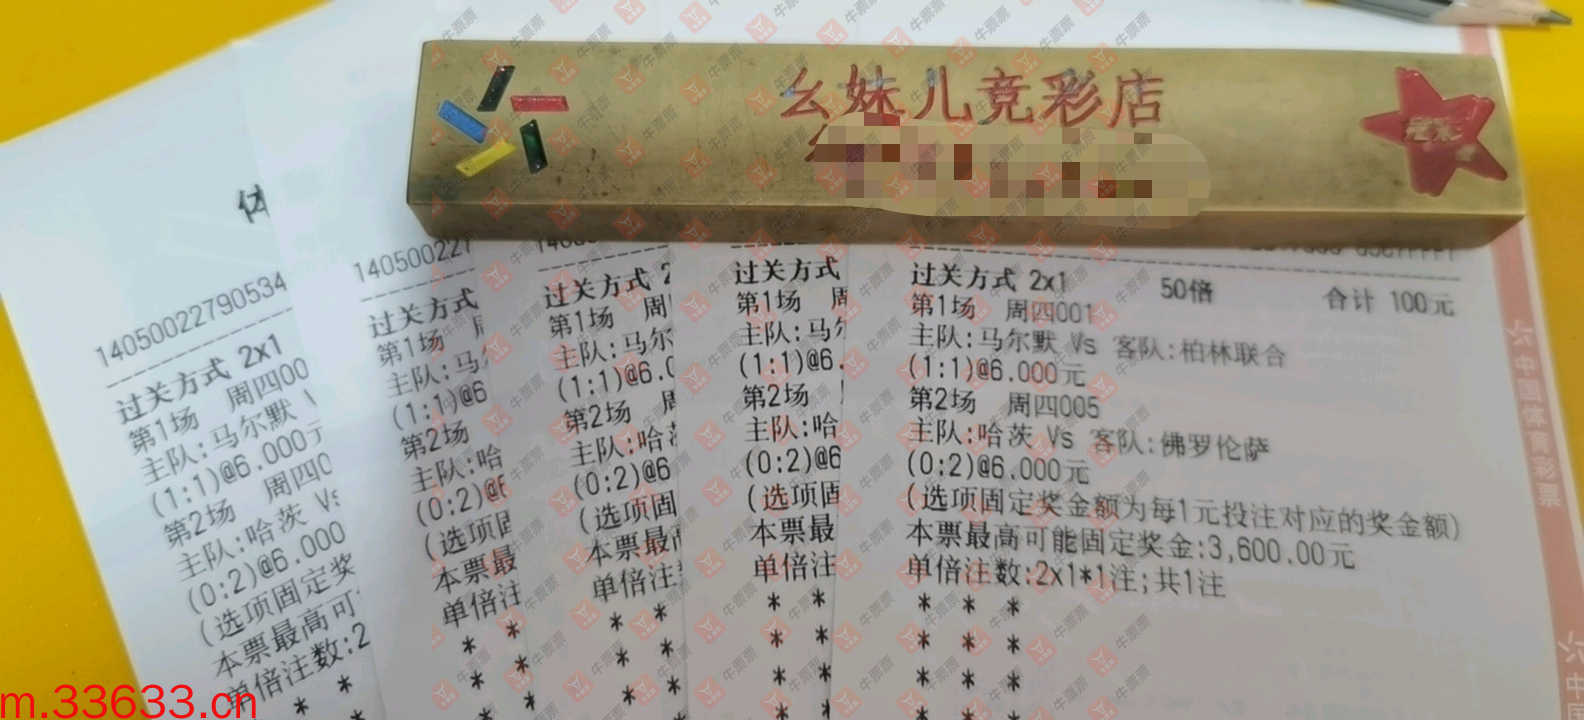 幺妹儿竞彩店
体
14050022790534
过关方式 2x1
第1场 周四00
主队:马尔默 V
(1:1)@6.000元
第2场 周四0
主队:哈茨 Vs
(0:2)@6.000
(选项固定奖
本票最高可
单倍注数:2
* *
140500227
过关方式
第1场 周
主队:马
(1:1)@6
第2场
主队:哈
(0:2)@6
(选项固
本票最
单倍注
* *
*
*
过关方式 2
第1场 周
主队:马尔
(1:1)@6.0
第2场 周
主队:哈茨
(0:2)@6
(选项固
本票最高
单倍注
* *
* *
* *
过关方式
第1场 周
主队:马尔
(1:1)@6.
第2场
主队:哈
(0:2)@6
(选项固
本票最
单倍注
* *
* *
* *
过关方式 2x1 50倍 合计 100元
第1场 周四001
主队:马尔默 Vs 客队:柏林联合
(1:1)@6.000元
第2场 周四005
主队:哈茨 Vs 客队:佛罗伦萨
(0:2)@6.000元
(选项固定奖金额为每1元投注对应的奖金额)
本票最高可能固定奖金:3,600.00元
单倍注数:2x1*1注;共1注
* * *
* * *
* * *
中国体育彩票
中国
牛票票
m.33633.cn